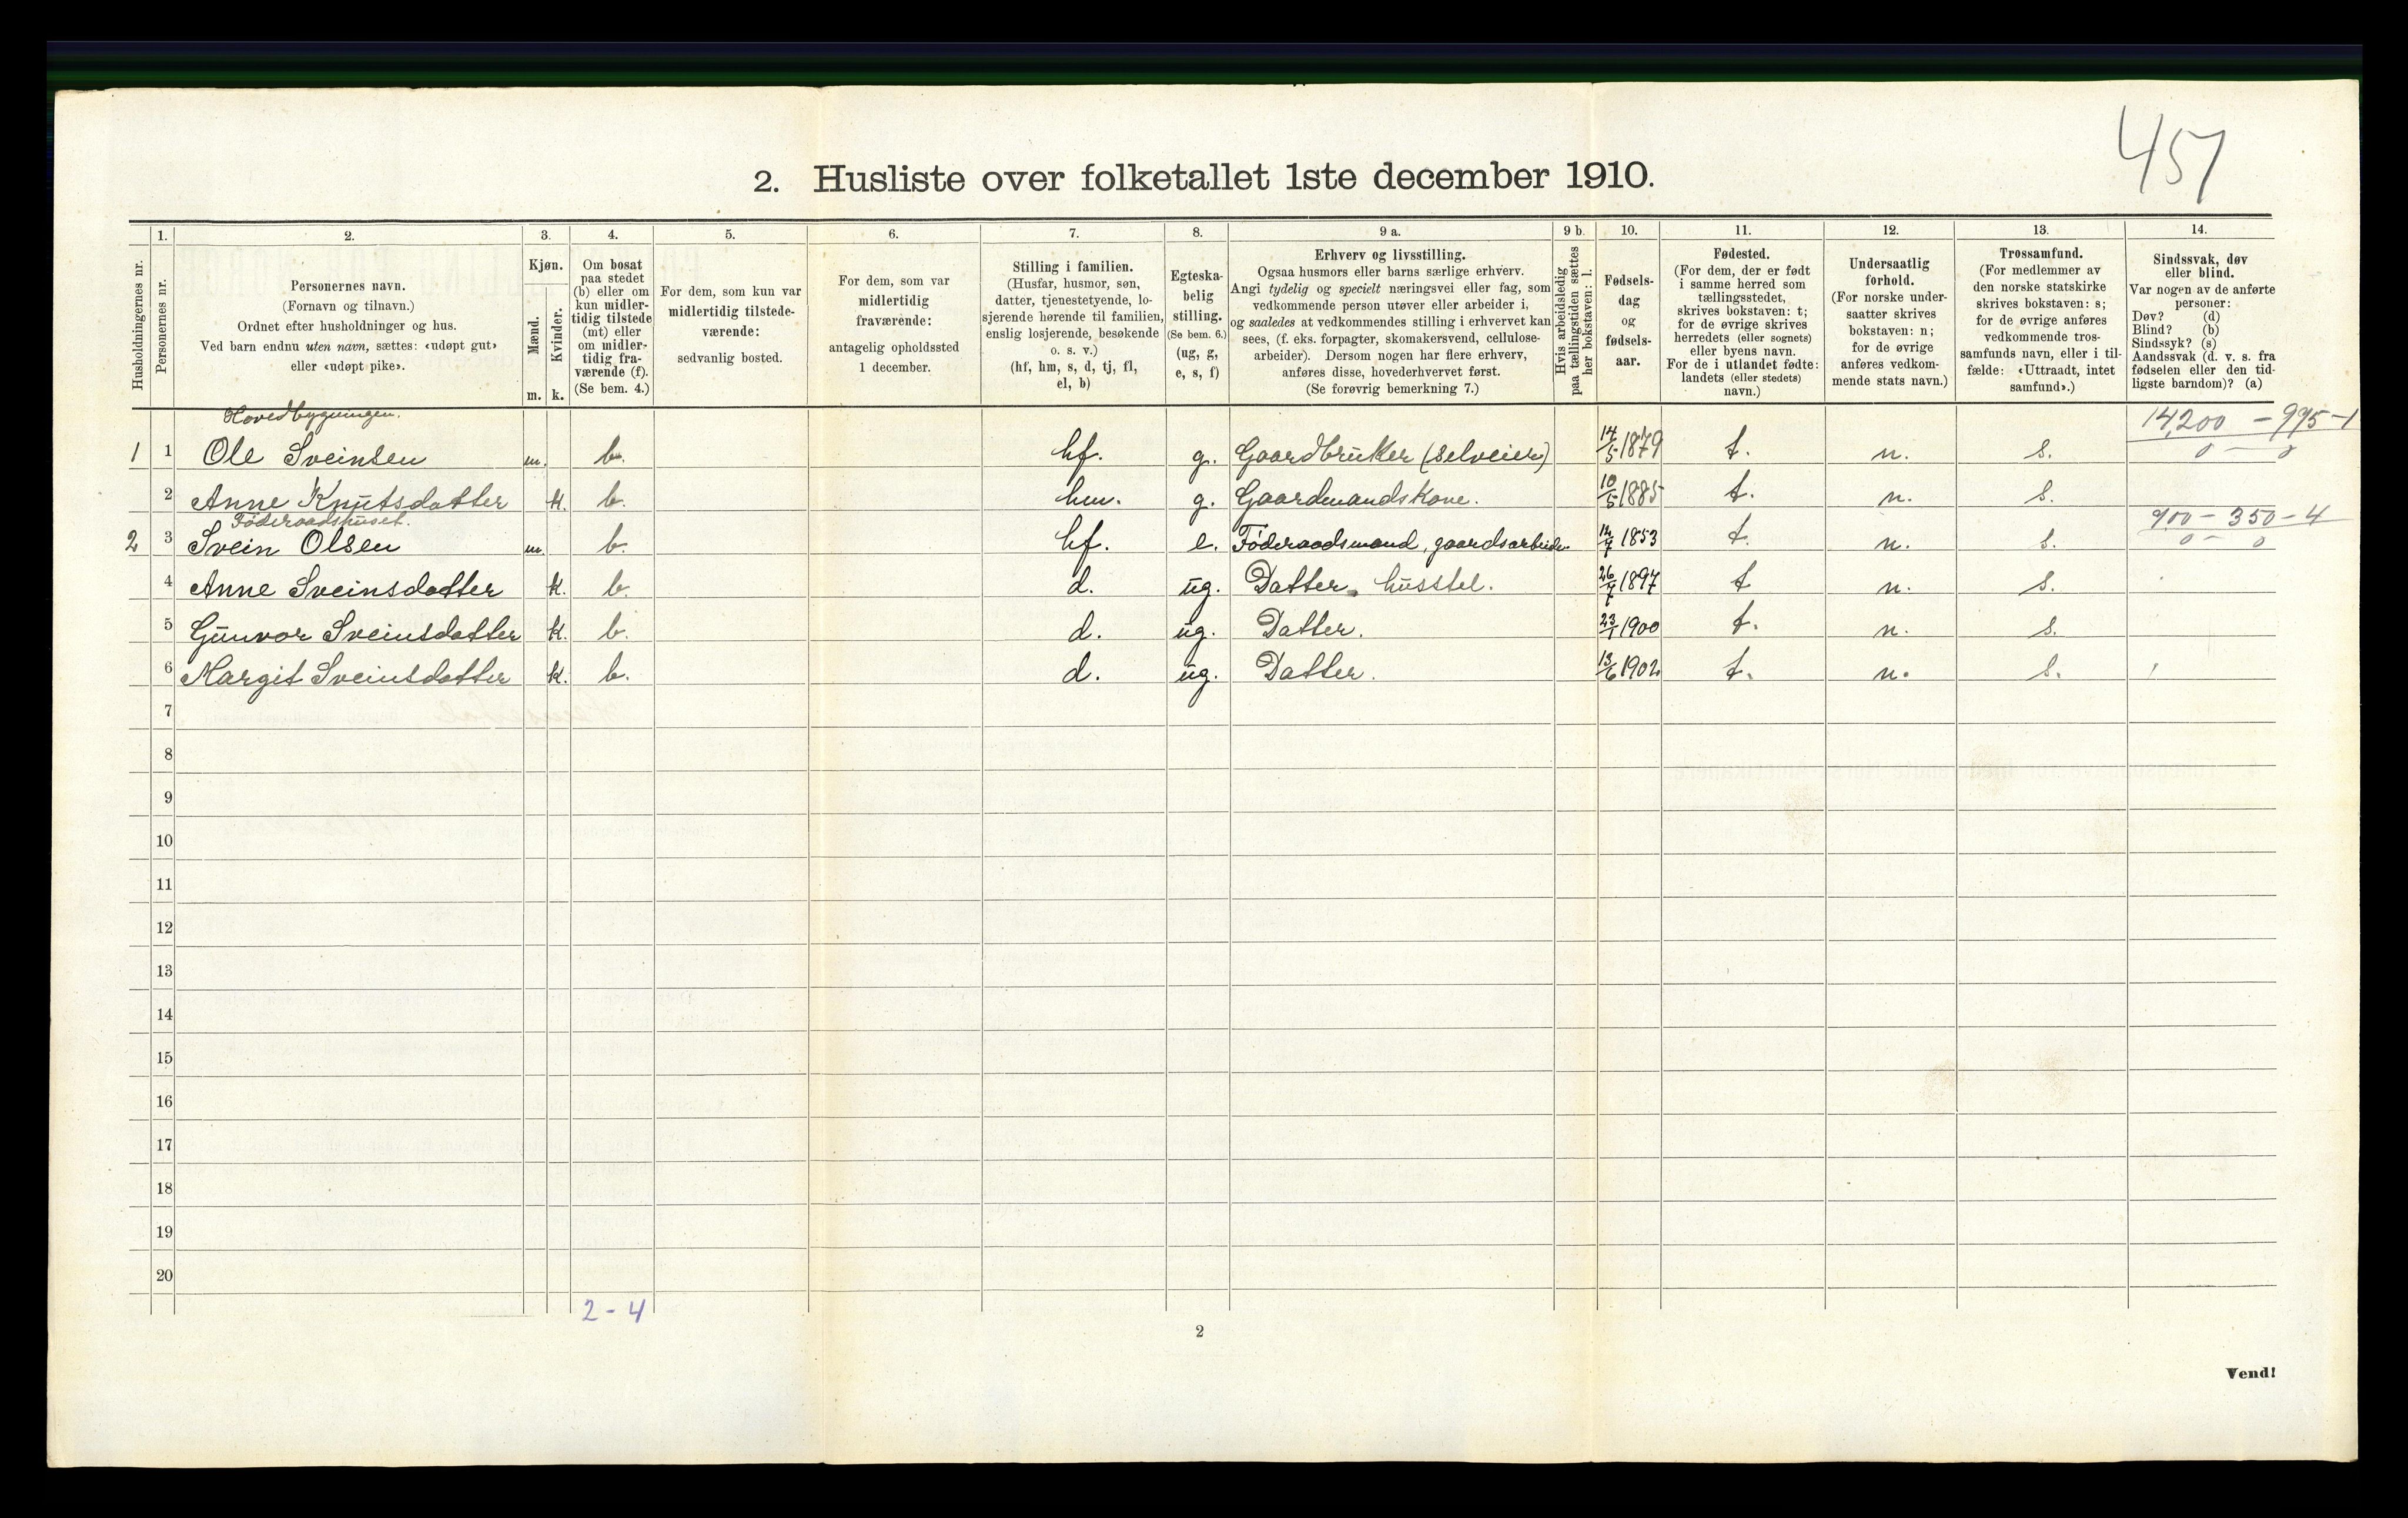 457
2. Husliste over folketallet 1ste december 1910.
Husholdningernes nr.
1.
Personernes nr.
2.
Personernes navn.
(Fornavn og tilnavn.)
Ordnet efter husholdninger og hus.
Ved barn endnu uten navn, sættes: «udøpt gut»
eller «udøpt pike».
3.
Kjøn.
Mænd.
Kvinder.
m. k.
4.
Om bosat
paa stedet
(b) eller om
kun midler-
tidig tilstede
(mt) eller
om midler-
tidig fra-
værende (f).
(Se bem. 4.)
5.
For dem, som kun var
midlertidig tilstede-
værende:
sedvanlig bosted.
6.
For dem, som var
midlertidig
fraværende:
antagelig opholdssted
1 december.
7.
Stilling i familien.
(Husfar, husmor, søn,
datter, tjenestetyende, lo-
sjerende hørende til familien,
enslig losjerende, besøkende
o. s. v.)
(hf, hm, s, d, tj, fl,
el, b)
8.
Egteska-
belig
stilling.
(Se bem. 6.)
(ug, g,
e, s, f)
9 a.
Erhverv og livsstilling.
Ogsaa husmors eller barns særlige erhverv.
Angi tydelig og specielt næringsvei eller fag, som
vedkommende person utøver eller arbeider i,
og saaledes at vedkommendes stilling i erhvervet kan
sees, (f. eks. forpagter, skomakersvend, cellulose-
arbeider). Dersom nogen har flere erhverv,
anføres disse, hovederhvervet først.
(Se forøvrig bemerkning 7.)
9 b.
Hvis arbeidsledig
paa tællingstiden sættes
her bokstaven: l.
10.
Fødsels-
dag
og
fødsels-
aar.
11.
Fødested.
(For dem, der er født
i samme herred som
tællingsstedet,
skrives bokstaven: t;
for de øvrige skrives
herredets (eller sognets)
eller byens navn.
For de i utlandet fødte:
landets (eller stedets)
navn.)
12.
Undersaatlig
forhold.
(For norske under-
saatter skrives
bokstaven: n;
for de øvrige
anføres vedkom-
mende stats navn.)
13.
Trossamfund.
(For medlemmer av
den norske statskirke
skrives bokstaven: s;
for de øvrige anføres
vedkommende tros-
samfunds navn, eller i til-
fælde: «Uttraadt, intet
samfund».)
14.
Sindssvak, døv
eller blind.
Var nogen av de anførte
personer:
Døv? (d)
Blind? (b)
Sindssyk? (s)
Aandssvak (d. v. s. fra
fødselen eller den tid-
ligste barndom)? (a)
Hovedbygningen. 14,200 - 995 - 1
1 1 Ole Sveinsen m. b. hf. g. Gaardbruker (selveier) 14/5 1879 t. n. s. 0 - 0
2 Anne Knutsdatter k. b. hm. g. Gaardmandskone. 10/5 1885 t. n. s.
Föderaadshuset. 900 - 350 - 4
2 3 Svein Olsen m. b. hf. e. Föderaadsmand, gaardsarbeider 12/7 1853 t. n. s. 0 - 0
4 Anne Sveinsdatter k. b. d. ug. Datter, husstel. 26/7 1897 t n. s.
5 Gunvor Sveinsdatter k. b. d. ug. Datter. 23/1 1900 t. n. s.
6 Margit Sveinsdatter k. b. d. ug. Datter. 13/6 1902 t. n. s.
7
8
9
10
11
12
13
14
15
16
17
18
19
20
2 - 4
2
Vend!